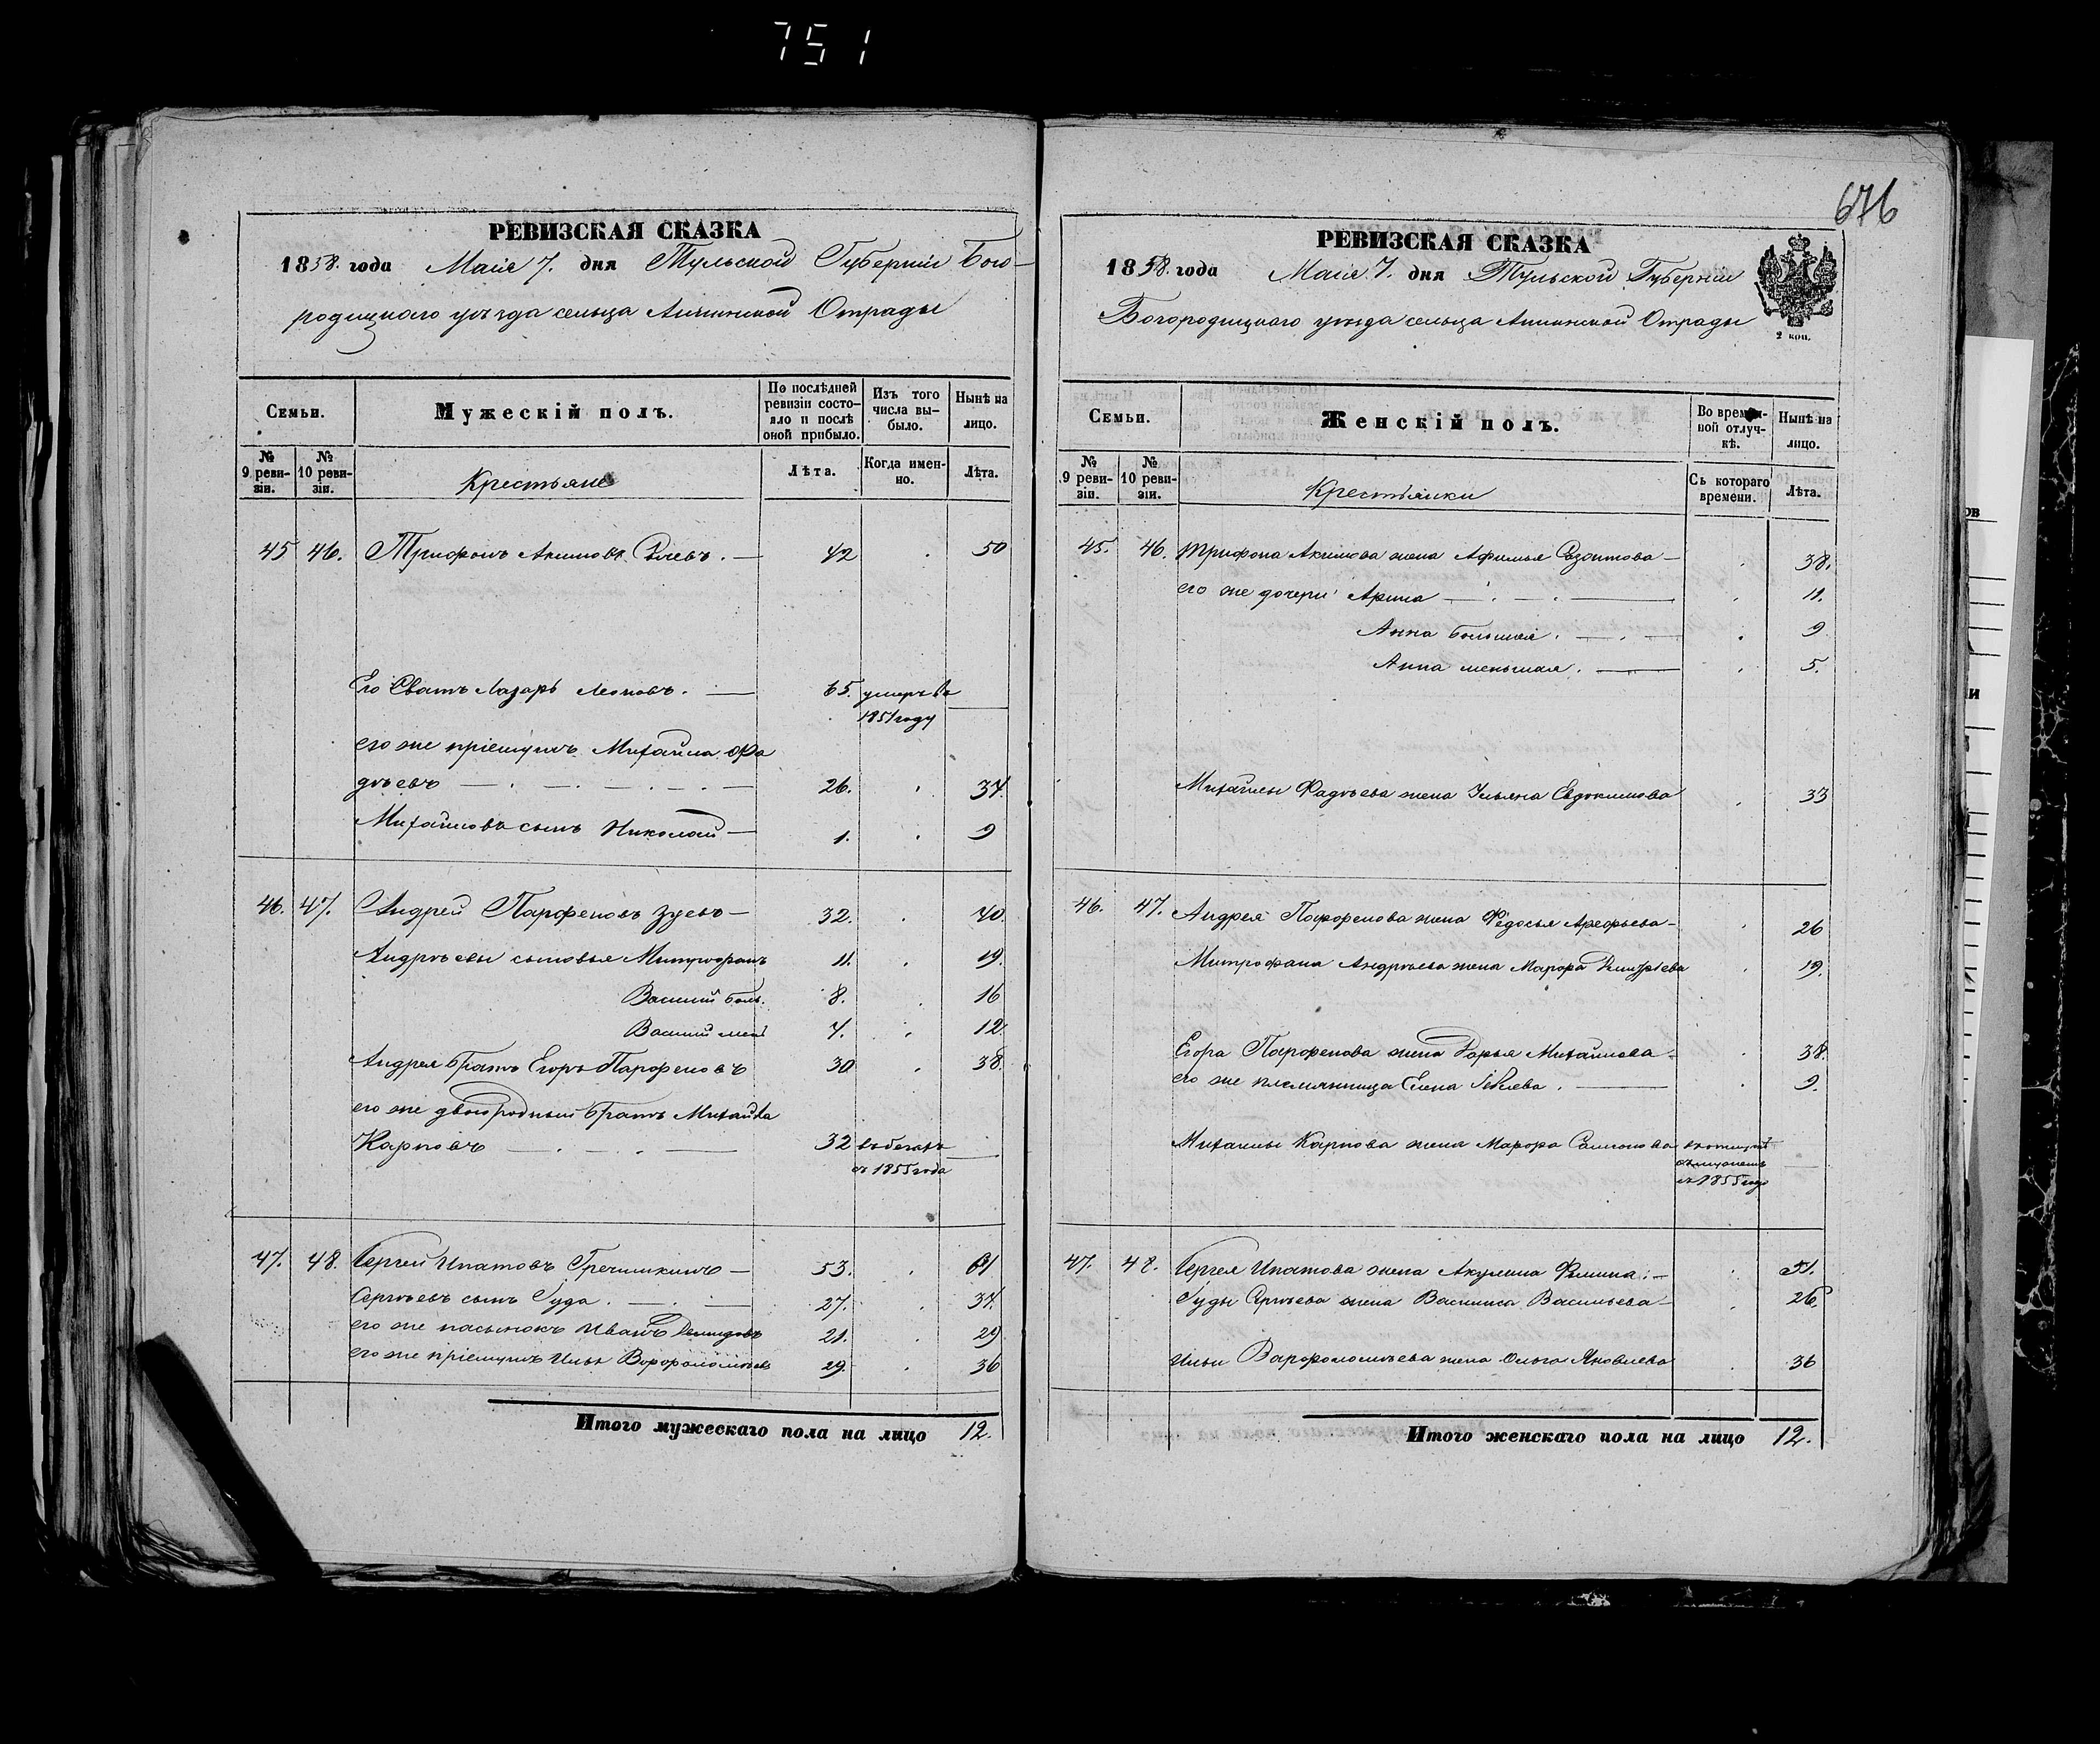 751
676
РЕВИЗСКАЯ СКАЗКА
1858. года Маія 7. дня Тульской Губерніи Бого-
родицкаго уѣзда сельца Аннинской Отрады
Семьи.
Мужескій полъ.
По послѣдней ревизіи состо-яло и послѣ оной прибыло.
Изъ того числа вы-было.
Нынѣ на лицо.
№ 9 реви-зіи.
№ 10 реви-зіи.
Крестьяне
Лѣта.
Когда имен-но.
Лѣта.
45 46. Трифонъ Акимовъ 42 50
Его Сватъ Лазарь Леоновъ. 65. умеръ въ
1851 году
его же пріемышъ Михайла Фа
дѣевъ 26. 34.
Михайловъ сынъ Николай 1. 9
46. 47. Андрей Парфеновъ Зуевъ 32. 40.
Андрѣевы сыновья Митрофанъ 11. 19.
Василій боль. 8. 16
Василій мен 4. 12.
Андрея братъ Егоръ Парфеновъ 30 38.
его же двоюродный братъ Михайла
Карповъ 32 въ бегахъ
съ 1855 года
47. 48. Сергей Ипатовъ Гречишкинъ 53. 61
Сергѣевъ сынъ Гуда. 27. 34.
его же пасынокъ Иванъ Демидовъ 21. 29
его же пріемышъ Илья Ворфоломѣевъ 29. 36
Итого мужескаго пола на лицо 12.
РЕВИЗСКАЯ СКАЗКА
1858. года Маія 7. дня Тульской Губерніи
Богородицкаго уѣзда сельца Аннинской Отрады
2 коп.
Семьи.
Женскій полъ.
Во времен-ной отлуч-кѣ.
Нынѣ на лицо.
№ 9 реви-зіи.
№ 10 реви-зіи.
Крестьянки
Съ котораго времени.
Лѣта.
45. 46. Трифона Акимова жена Афимья 38.
его же дочери Арина 11.
Анна большая. 9
Анна меньшая. 5.
Михайлы Фадѣева жена Ульяна Евдокимова 33
46. 47. Андрея Парфенова жена Федосья Арефьева 26
Митрофана Андрѣева жена Марфа Дмитріева 19.
Егора Парфенова жена Дарья Михайлова 38.
его же племянница Елена 9.
Михайлы Карпова жена Марфа Самсонова
съ 1855 году
47. 48. Сергея Ипатова жена Акулина Фомина. 51.
Гуды Сергѣева жена Василиса Васильева 26.
Ильи Варфоломѣева жена Ольга Яковлева 36
Итого женскаго пола на лицо 12.